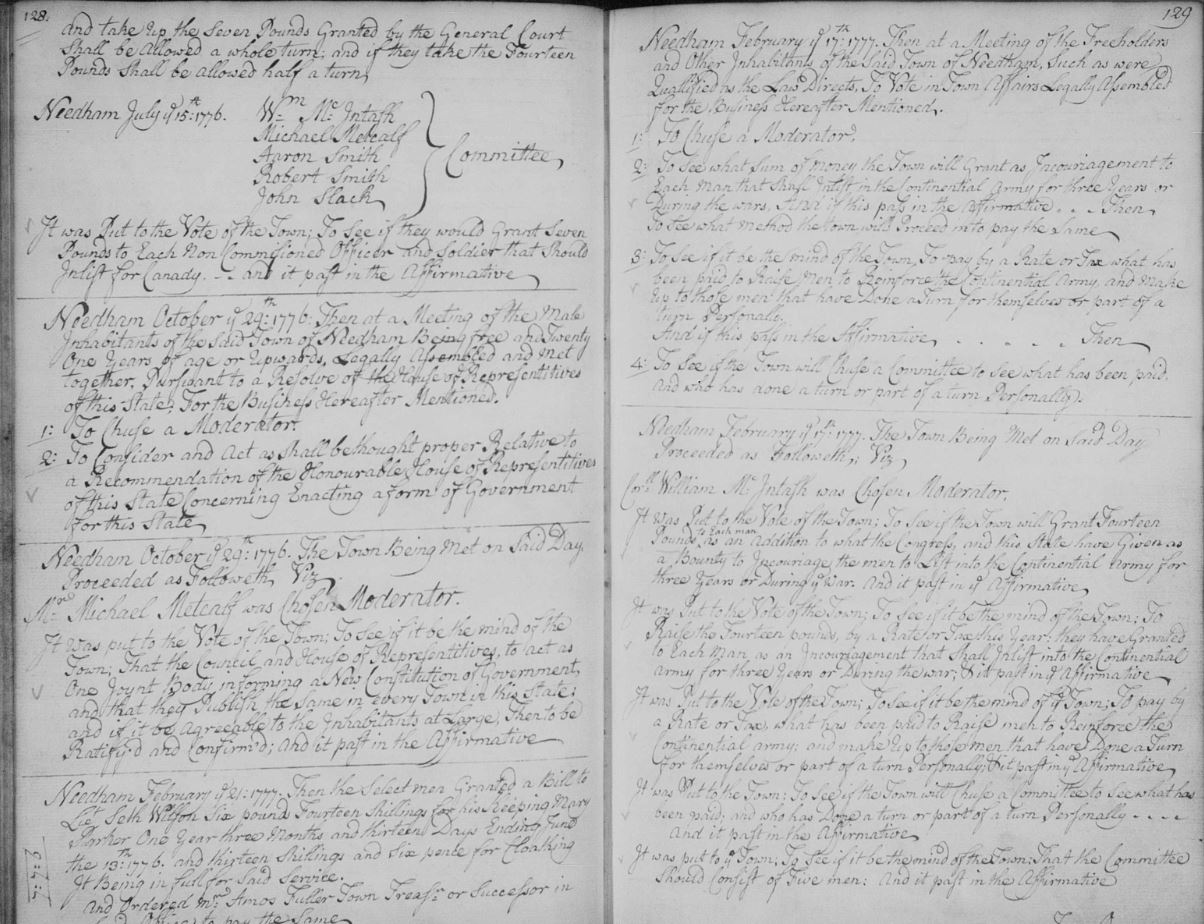 128.
and take up the Seven Pounds Granted by the General Court
Shall be Allowed a whole turn; and if they take the Fourteen
Pounds Shall be allowed half a turn,
Needham July ye 15th: 1776.
Wm Mc Intash
Michael Metcalf
Aaron Smith
Robert Smith
John Slack
Committee
It was Put to the Vote of the Town; To See if they would Grant Seven
Pounds to Each Non Commissioned Officer and Soldier that Should
Inlist for Canady. - - and it past in the Affirmative
Needham October ye 29th: 1776. Then at a Meeting of the Male
Inhabitants of the Said Town of Needham Being free and Twenty
One Years of age or Upwards, Legally Assembled and met
together, Pursuant to a Resolve of the House of Representitives
of this State; For the Business Hereafter Mentioned.
1: To Chuse a Moderator.
2: To Consider and Act as Shall be thought proper Relative to
a Recommendation of the Honourable House of Representitives
of this State Concerning Enacting a form of Government
for this State
Needham October ye 29th: 1776. The Town Being Met on Said Day
Proceeded as Followeth Viz
Mr Michael Metcalf was Chosen Moderator.
It Was put to the Vote of the Town; To See if it be the mind of the
Town; That the Council and House of Representitives, to act as
One Joynt Body, in forming a New Constitution of Government,
and that they Publish the Same in every Town in this State:
and if it be Agreeable to the Inhabitants at Large, Then to be
Ratify'd and Confirm'd; And it past in the Affirmative
Needham February ye 21: 1777. Then the Select men Granted a Bill to
Lie Seth Willson Six pound Fourteen Shillings for his Keeping Mary
Parker One Year three Months and thirteen Days Ending June
the 13th: 1776. and thirteen Shillings and Six pence for Cloathing
It Being in full for Said Service.
And Ordered Mr Amos Fuller Town Treasr or Successor in
to pay the Same
129
Needham February ye 17th: 1777. Then at a Meeting of the Freeholders
and Other Inhabitants of the Said Town of Needham, Such as were
Quallified as the Law Directs, To Vote in Town Affairs Legally Assembled
for the Business Hereafter Mentioned.
1: To Chuse a Moderator.
2: To See what Sum of money the Town will Grant as Incouriagement to
Each Man that Shall Inlist in the Continential Army for three Years or
During the wars, And if this pass in the Affirmative . . . Then
To See what method the town will Proceed in to pay the Same
3: To See if it be the mind of the Town, To pay by a Rate or Tax what has
been paid to Raise Men to Reinforce the Continential Army, and make
up to those men that have Done a Turn for themselves or part of a
turn Personaly.
And if this pass in the Affirmative . . . . . . Then
4: To See if the Town will Chuse a Committee to See what has been paid
and who has done a turn or part of a turn Personally.
Needham February ye 17: 1777. The Town Being Met on Said Day
Proceeded as Followeth; Viz
Corll William Mc Intash was Chosen Moderator.
It Was Put to the Vote of the Town; To See if the Town will Grant Fourteen
to Each man
Pounds, as an Addition to what the Congress, and this State have Given as
a Bounty to Incouriage the men to List into the Continential Army for
three Years or During ye War. And it past in ye Affirmative
It was Put to the Vote of the Town; To See if it be the mind of the Town; To
Raise the Fourteen pounds, by a Rate or Tax this Year; they have Granted
to Each Man, as an Incouriagement that Shall Inlist into the Continential
army for three Years or During the war; & it past in ye Affirmative
It was Put to the Vote of the Town; To See if it be the mind of ye Town; To pay by
a Rate or Tax, what has been paid to Raise men to Reinforce the
Continential army; and make Up to those men that have Done a Turn
for themselves or part of a turn Personally; & it past in ye Affirmative
It was Put to the Town; To See if the Town will Chuse a Committee to See what has
been paid; and who has Done a turn or part of a turn Personally - - - -
And it past in the Affirmative
It was put to ye Town; To See if it be the mind of the Town: That the Committee
Should Consist of Five men: And it past in the Affirmative